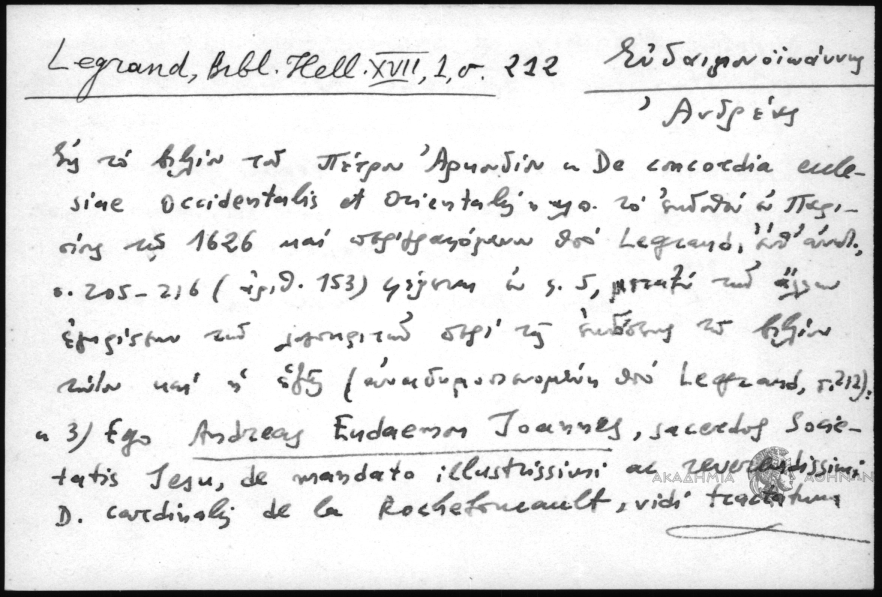 Legrand, Bibl. Hell. XVII, 1, σ. 212
Εὐδαιμονοϊωάννης
Ἀνδρέας
Εἰς τὸ βιβλίον τοῦ Πέτρου Ἀρκουδίου « De concordia eccle-
siae occidentalis et orientalis » τὸ ἐκδοθὲν ἐν Παρι-
σίοις τῷ 1626 καὶ περιγραφόμενον ὑπὸ Legrand, ἔνθ' ἀνωτ.,
σ. 205-216 (ἀριθ. 153) φέρεται ἐν σ. 5, μεταξὺ τῶν ἄλλων
ἐγκρίσεων τῶν περὶ τῆς ἐκδόσεως τοῦ βιβλίου
τούτου καὶ ἡ ἑξῆς (ἀναδημοσιευομένη ὑπὸ Legrand, σ. 212):
« 3) Ego Andreas Eudaemon Joannes, sacerdos Socie-
tatis Jesu, de mandato illustrissimi ac reverendissimi
D. cardinalis de la Rochefoucault, vidi tractatum
ΑΚΑΔΗΜΙΑ ΑΘΗΝΩΝ